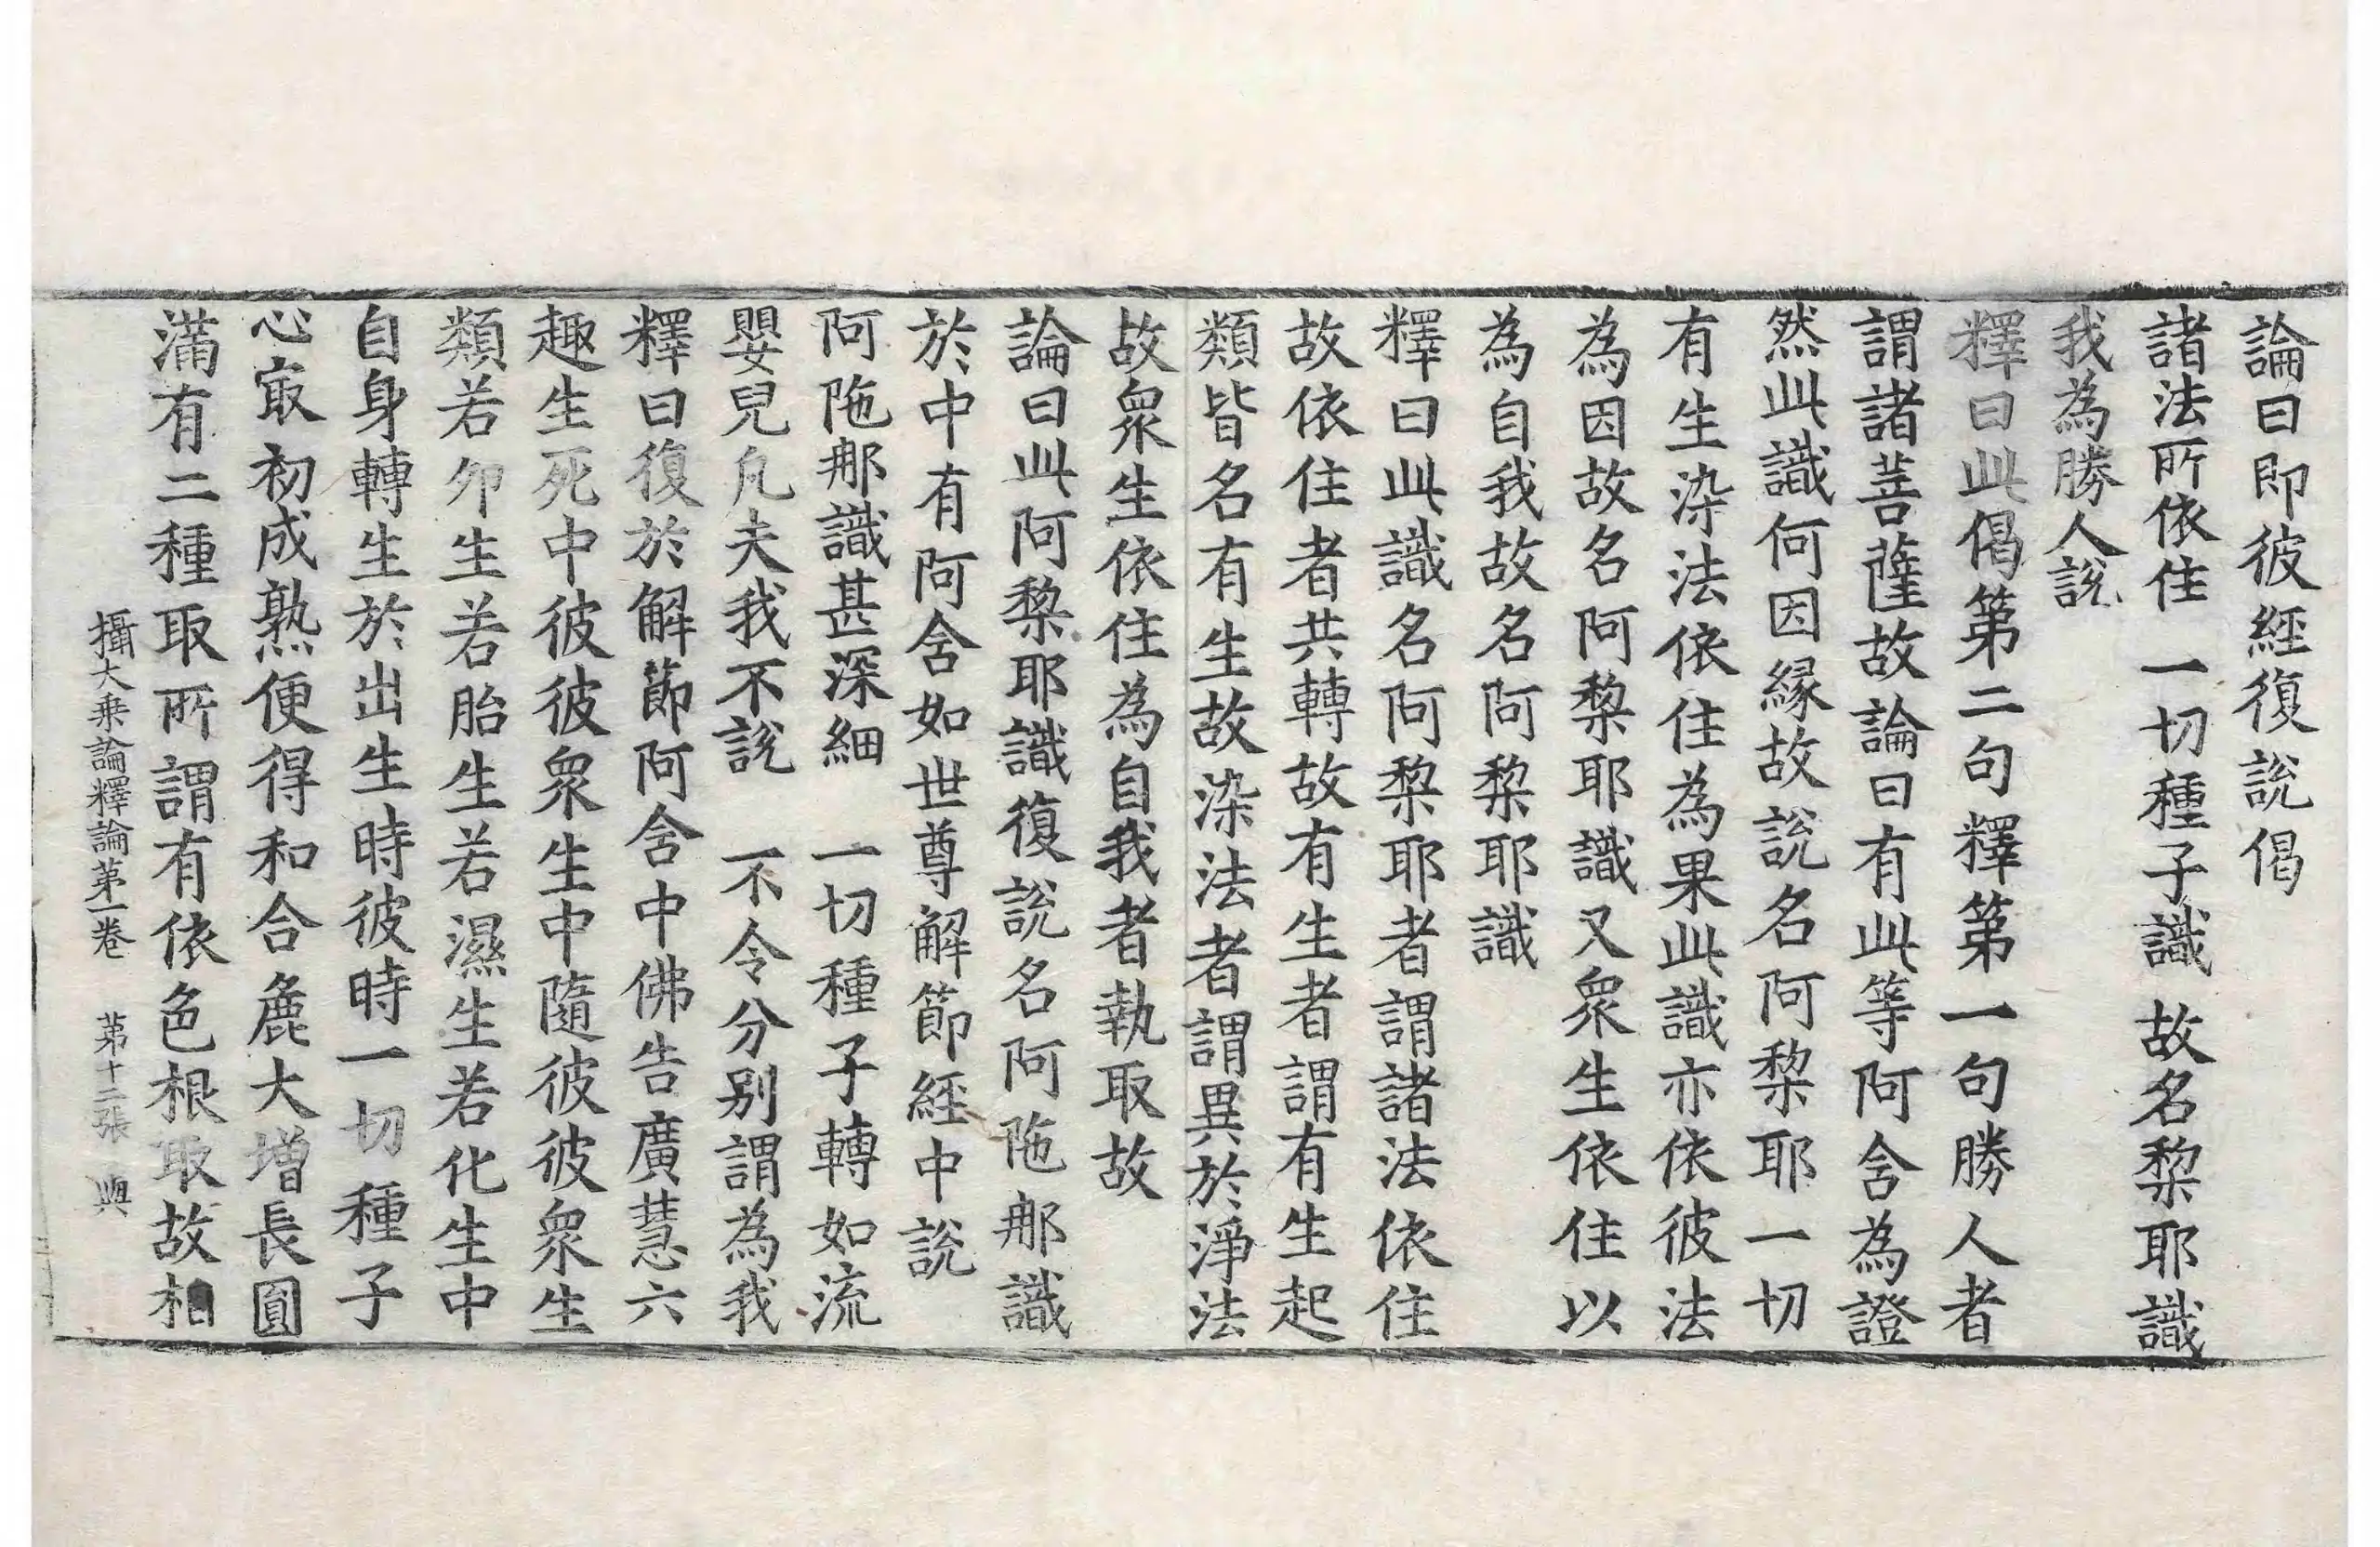 論曰即彼經復說偈
諸法所依住 一切種子識 故名黎耶識
我為勝人說
釋曰此偈第二句釋第一句勝人者
謂諸菩薩故論曰有此等阿含為證
然此識何因緣故說名阿黎耶一切
有生染法依住為果此識亦依彼法
為因故名阿黎耶識又眾生依住以
為自我故名阿黎耶識
釋曰此識名阿黎耶者謂諸法依住
故依住者共轉故有生者謂有生起
類皆名有生故染法者謂異於淨法
故眾生依住為自我者執取故
論曰此阿黎耶識復說名阿陁那識
於中有阿含如世尊解節經中說
阿陁那識甚深細 一切種子轉如流
嬰兒凡夫我不說 不令分別謂為我
釋曰復於解節阿含中佛告廣慧六
趣生死中彼彼眾生中隨彼彼眾生
類若卵生若胎生若濕生若化生中
自身轉生於出生時彼時一切種子
心㝡初成熟便得和合麁大增長圓
滿有二種取所謂有依色根取故相
攝大乘論釋論第一卷 第十二張 興